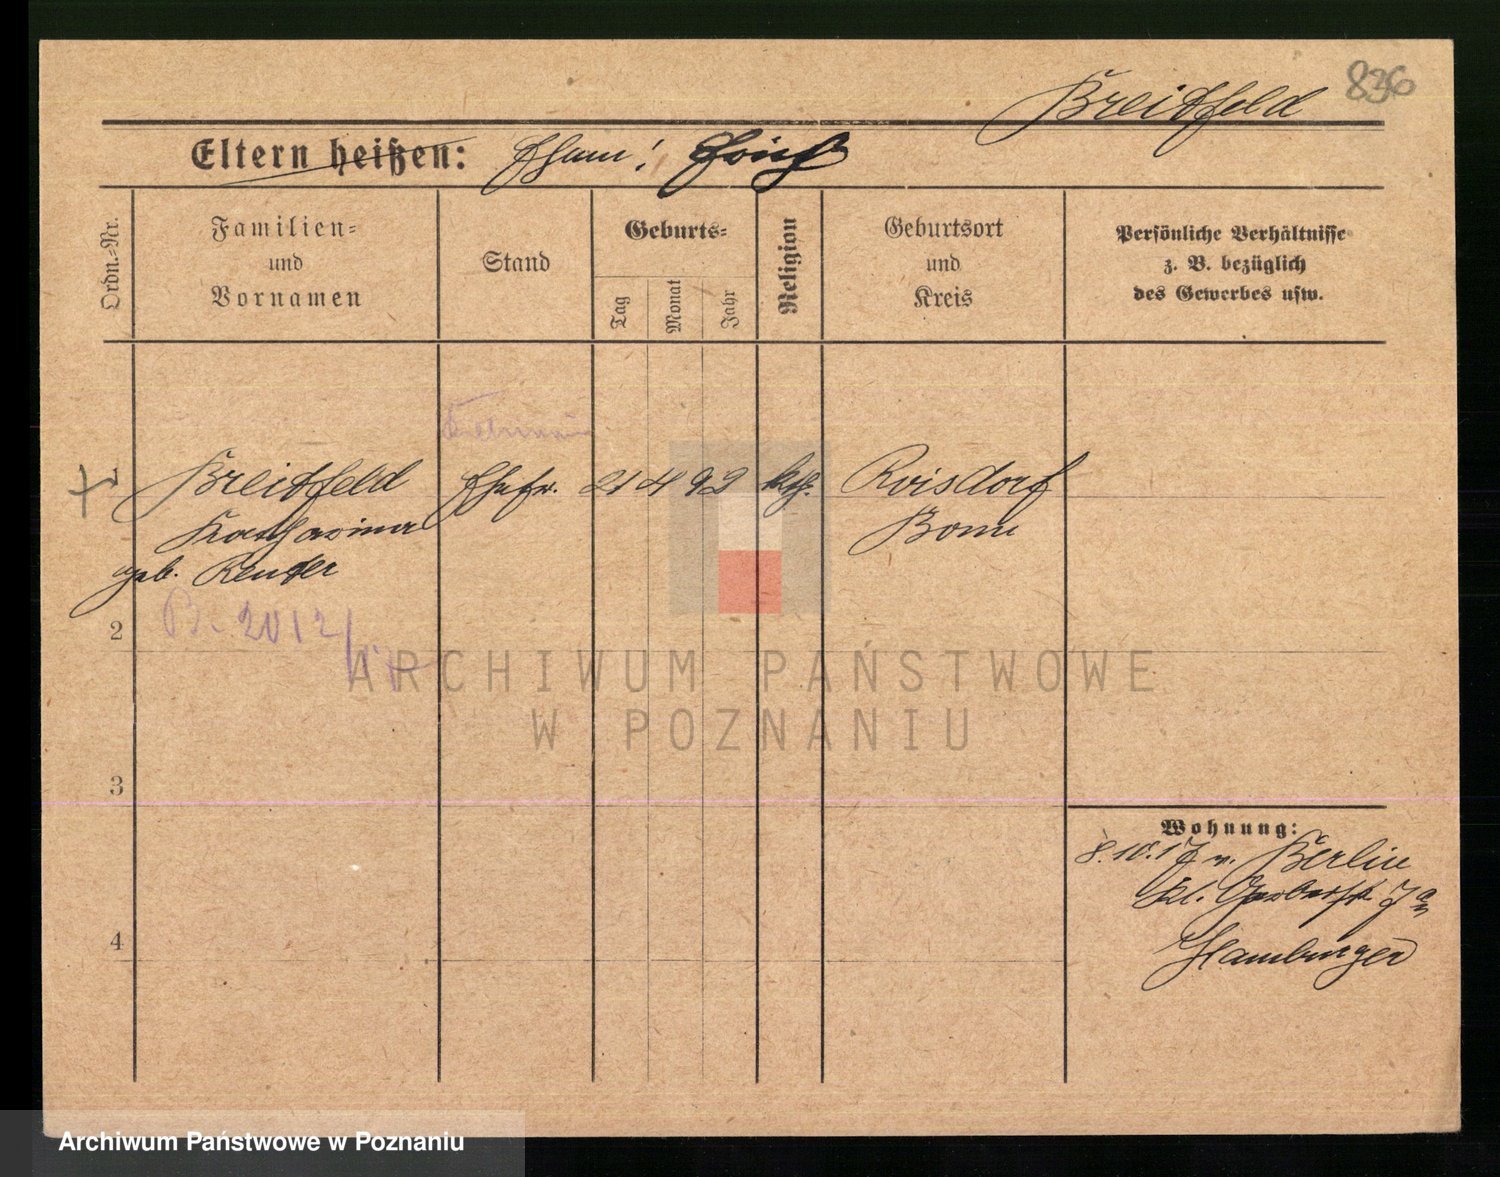 836
Breitfeld
Eltern heißen: Ehem:
Ordn.-Nr.
Familien-
und
Vornamen
Stand
Geburts-
Tag
Monat
Jahr
Religion
Geburtsort
und
Kreis
Persönliche Verhältnisse
z. B. bezüglich
des Gewerbes usw.
1 Breitfeld Ehefr. 21 4 92 kth. Roisdorf
Katharina Bonn
geb. Reuter
2 B. 2012/
ARCHIWUM PAŃSTWOWE
W POZNANIU
3
Wohnung:
8.10.17 v. Berlin
kl.
Hamburger
4
Archiwum Państwowe w Poznaniu